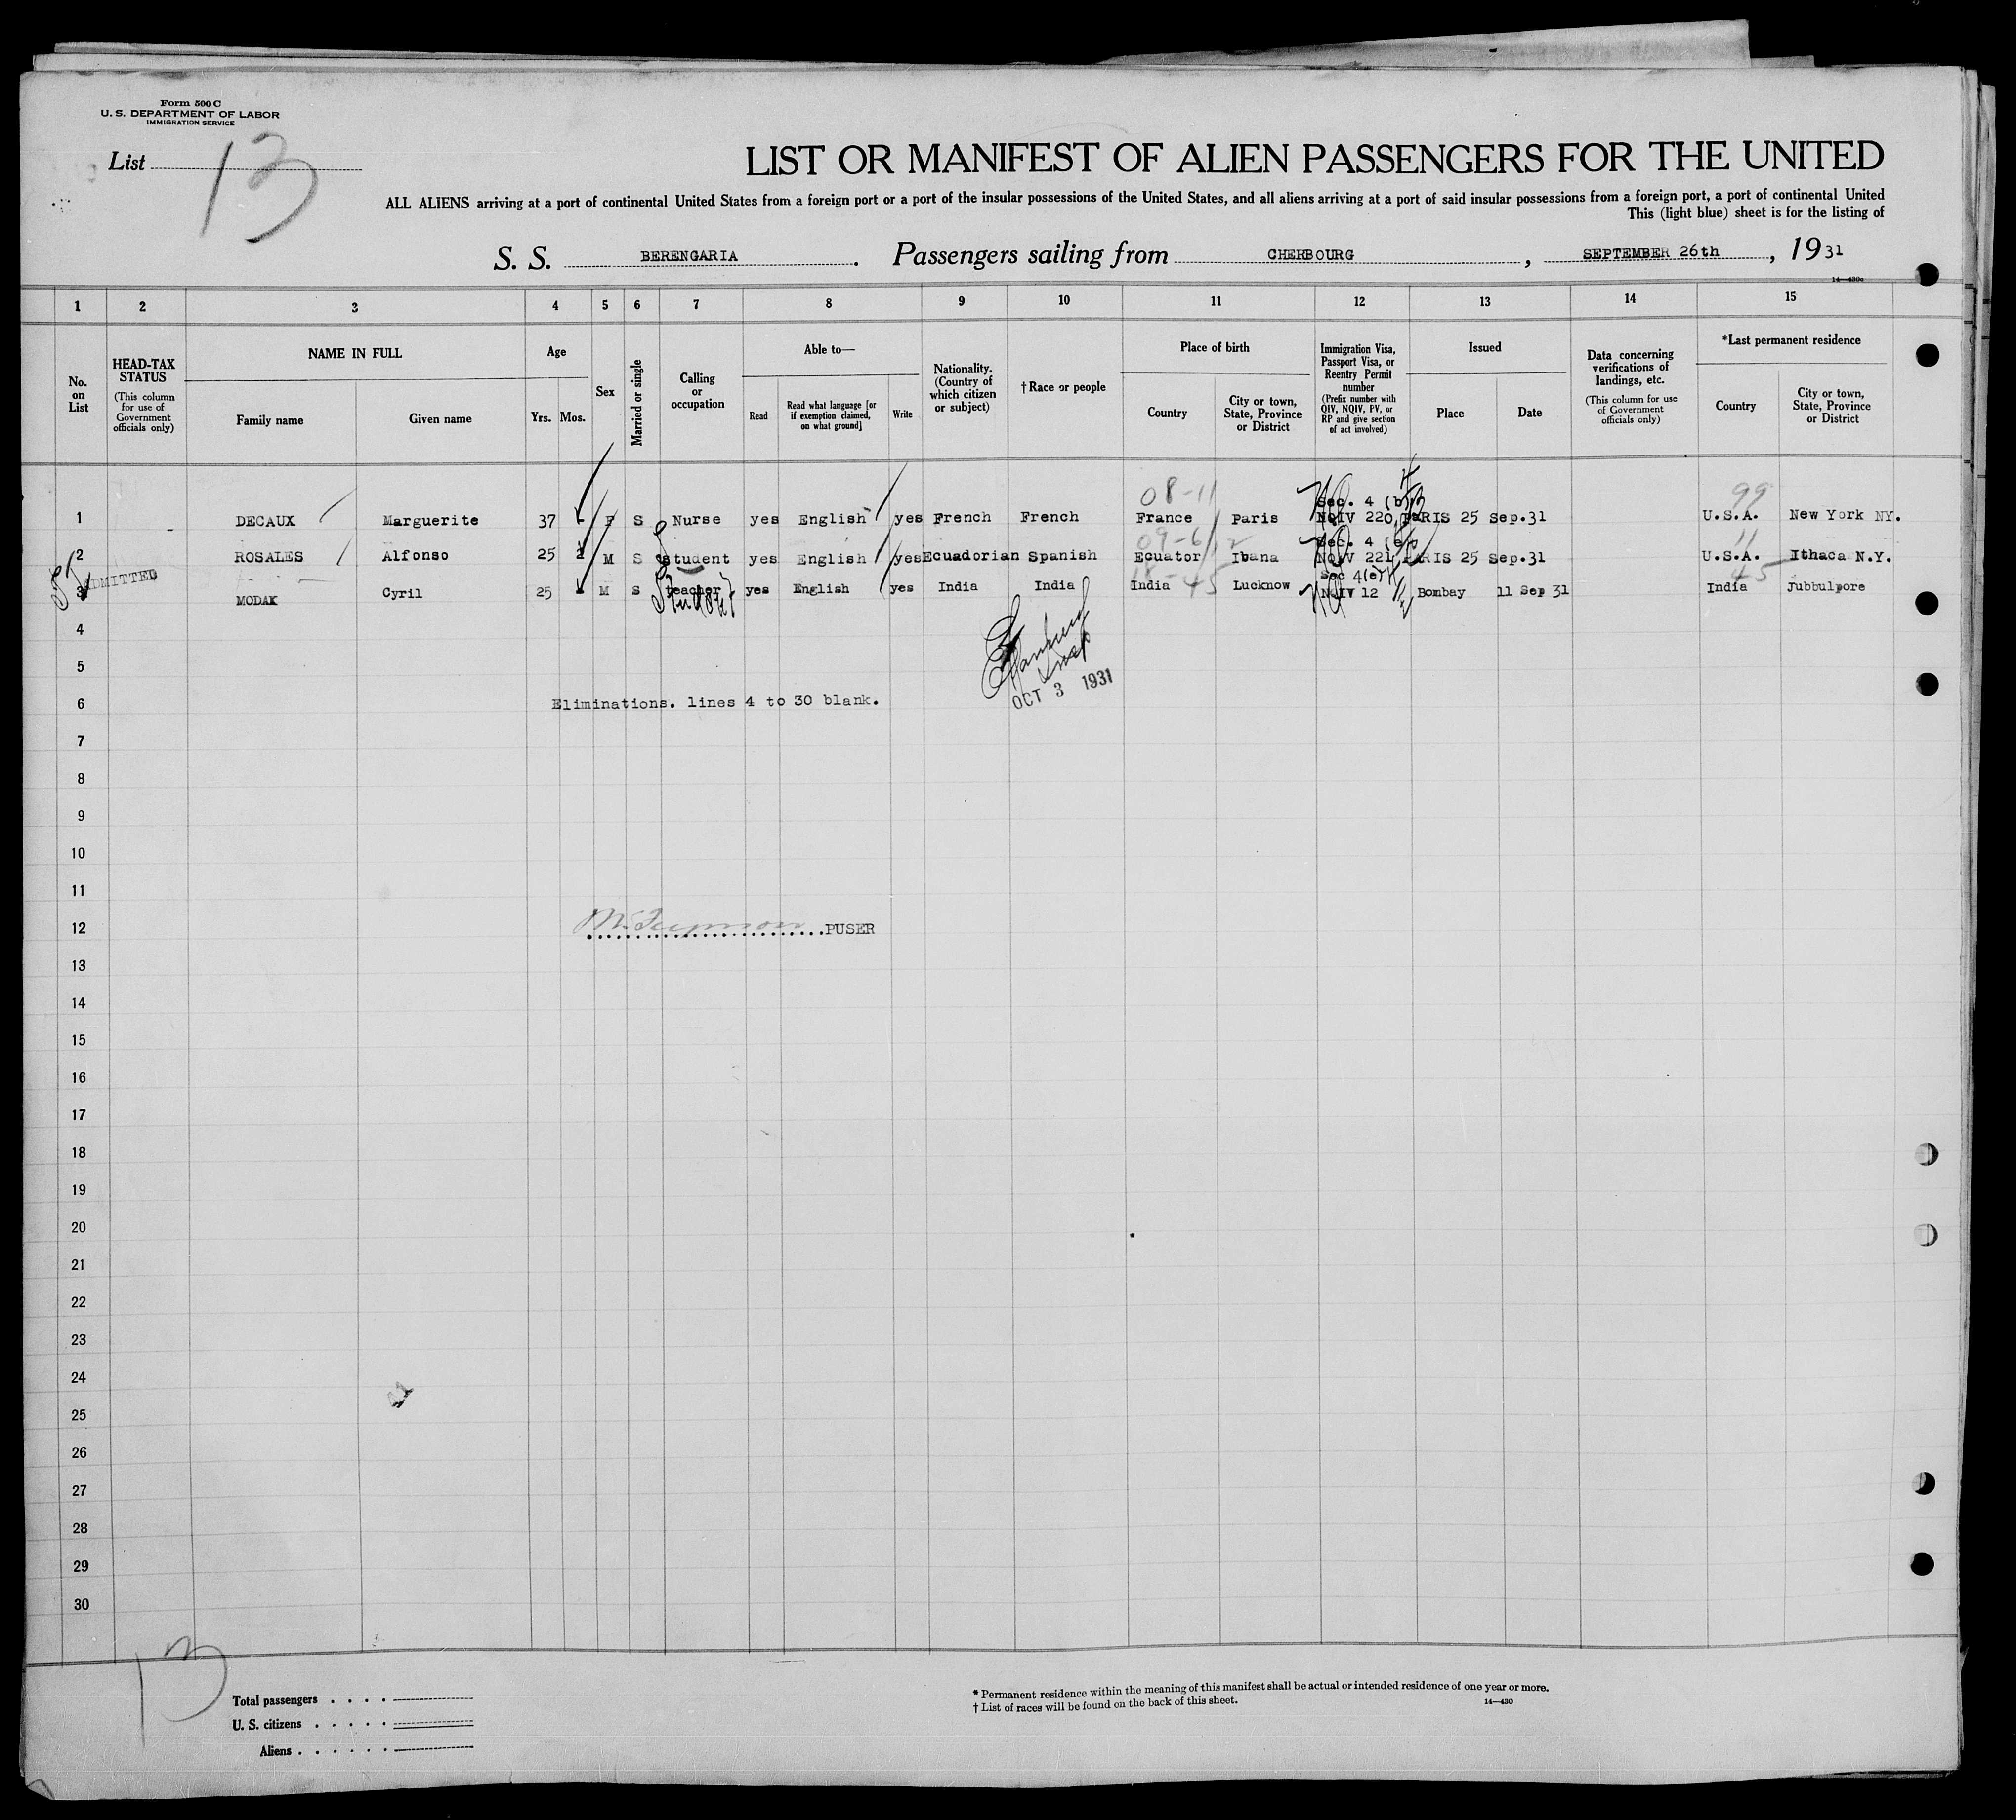 Form 500 C
U. S. DEPARTMENT OF LABOR
IMMIGRATION SERVICE
List 13
LIST OR MANIFEST OF ALIEN PASSENGERS FOR THE UNITED
ALL ALIENS arriving at a port of continental United States from a foreign port or a port of the insular possessions of the United States, and all aliens arriving at a port of said insular possessions from a foreign port, a port of continental United
This (light blue) sheet is for the listing of
S. S. BERENGARIA. Passengers sailing from CHERBOURG, SEPTEMBER 26th, 1931
14—430c
1 2 3 4 5 6 7 8 9 10 11 12 13 14 15
No. on List
HEAD-TAX STATUS (This column for use of Government officials only)
NAME IN FULL
Family name
Given name
Age
Yrs. Mos.
Sex
Married or single
Calling or occupation
Able to—
Read
Read what language [or if exemption claimed, on what ground]
Write
Nationality. (Country of which citizen or subject)
†Race or people
Place of birth
Country
City or town, State, Province or District
Immigration Visa, Passport Visa, or Reentry Permit number (Prefix number with QIV, NQIV, PV, or RP and give section of act involved)
Issued
Place
Date
Data concerning verifications of landings, etc. (This column for use of Government officials only)
*Last permanent residence
Country
City or town, State, Province or District
08-11 Sec. 4 (b) 99
1 DECAUX Marguerite 37 - F S Nurse yes English yes French French France Paris NQIV 220 PARIS 25 Sep.31 U.S.A. New York NY.
09-61 Sec. 4 (e) 11
2 ROSALES Alfonso 25 2 M S student yes English yes Ecuadorian Spanish Ecuator Ibana NQIV 221 PARIS 25 Sep.31 U.S.A. Ithaca N.Y.
ADMITTED Sec 4(e) 45
3 MODAK Cyril 25 - M S teacher yes English yes India India India Lucknow NQIV 12 Bombay 11 Sep 31 India Jubbulpore
Student
4
5
Insp
OCT 3 1931
6 Eliminations. lines 4 to 30 blank.
7
8
9
10
11
12 PUSER
13
14
15
16
17
18
19
20
21
22
23
24
25
26
27
28
29
30
13
Total passengers . . . .
U. S. citizens . . . . .
Aliens . . . . . .
* Permanent residence within the meaning of this manifest shall be actual or intended residence of one year or more.
† List of races will be found on the back of this sheet.
14—430